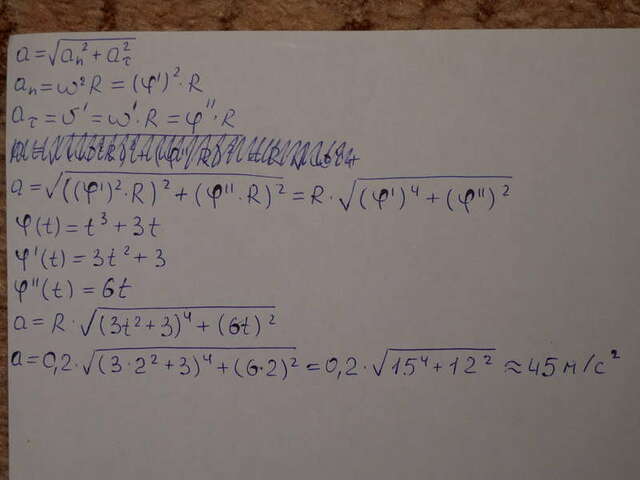 a = √(aₙ² + a_τ²)
aₙ = ω²R = (φ')²·R
a_τ = υ' = ω'·R = φ''·R
a = √(((φ')²·R)² + (φ''·R)²) = R·√((φ')⁴ + (φ'')²)
φ(t) = t³ + 3t
φ'(t) = 3t² + 3
φ''(t) = 6t
a = R·√((3t² + 3)⁴ + (6t)²)
a = 0,2·√((3·2² + 3)⁴ + (6·2)²) = 0,2·√(15⁴ + 12²) ≈ 45 м/с²